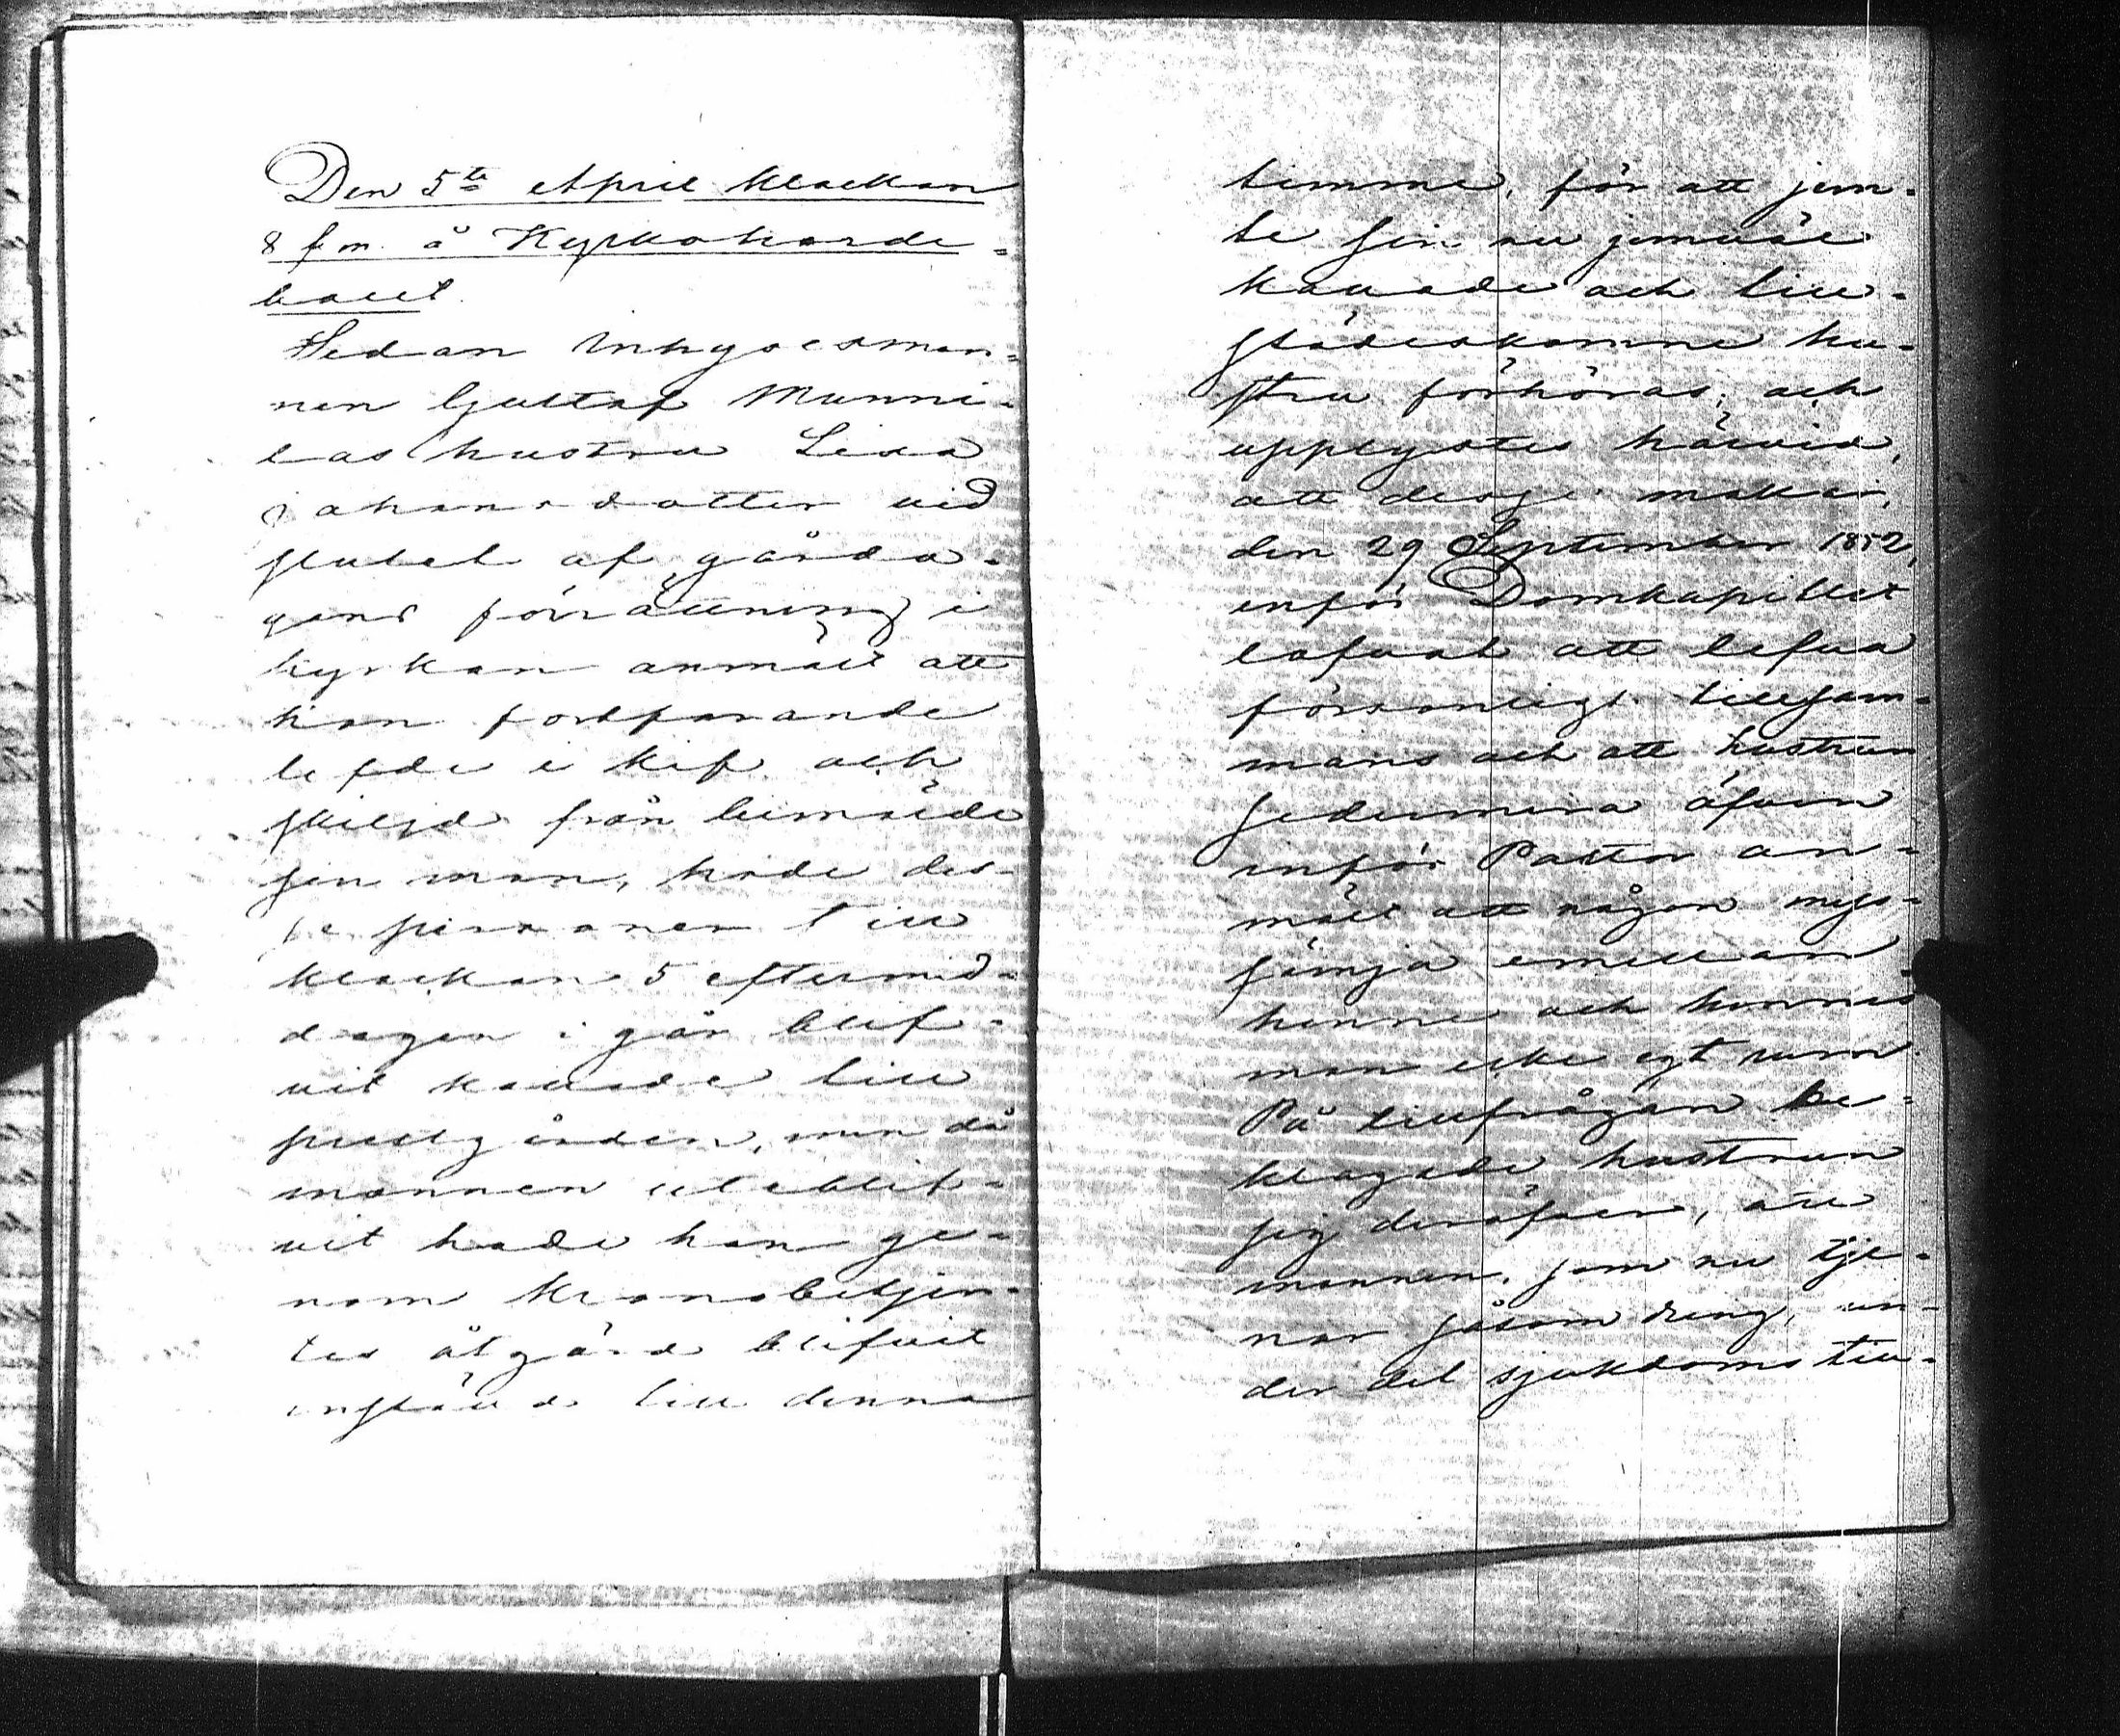 Den 5te April klockan
8 fm. å Kyrkoherde-
bolet.
Sedan Inhysesman-
nen Gustaf Munni-
las hustru Lisa
Johansdotter vid
slutet af gårda-
gens förrättning i
kyrkan anmält att
hon fortfarande
lefde i kif och
skiljd från bemälde
sin man, hade des-
se personer till
klockan 5 eftermid-
dagen i går blif-
vit kallade till
prestgården, men då
mannen uteblif-
vit hade han ge-
nom Kronobetjen-
tes åtgärd blifvit
inställd till denna
timme, för att jem-
te sin nu jemväl
kallade och till-
städeskomne hu-
stru förhöras; och
upplystes härvid,
att desse makar,
den 29 September 1852,
inför Domkapitlet
lofvat att lefva
försonligt tillsam-
mans och att hustrun
sedermera äfven
inför Pastor an-
mält att någon miss-
sämja emellan
henne och hennes
man icke egt rum.
På tillfrågan be-
klagade hustrun
sig deröfver, att
mannen, som nu tje-
nar såsom dreng, un-
der det sjukdoms till-